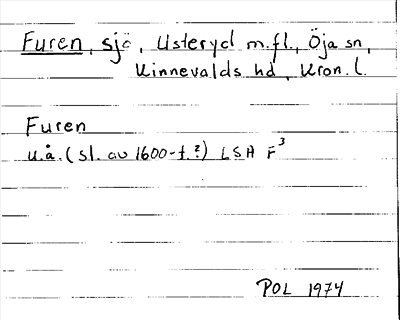 Furen, sjö, Usteryd m.fl., Öja sn,
Kinnevalds hd, Kron. l.
Furen
u.å. (sl. av 1600-t.?) LSA F3
POL 1974